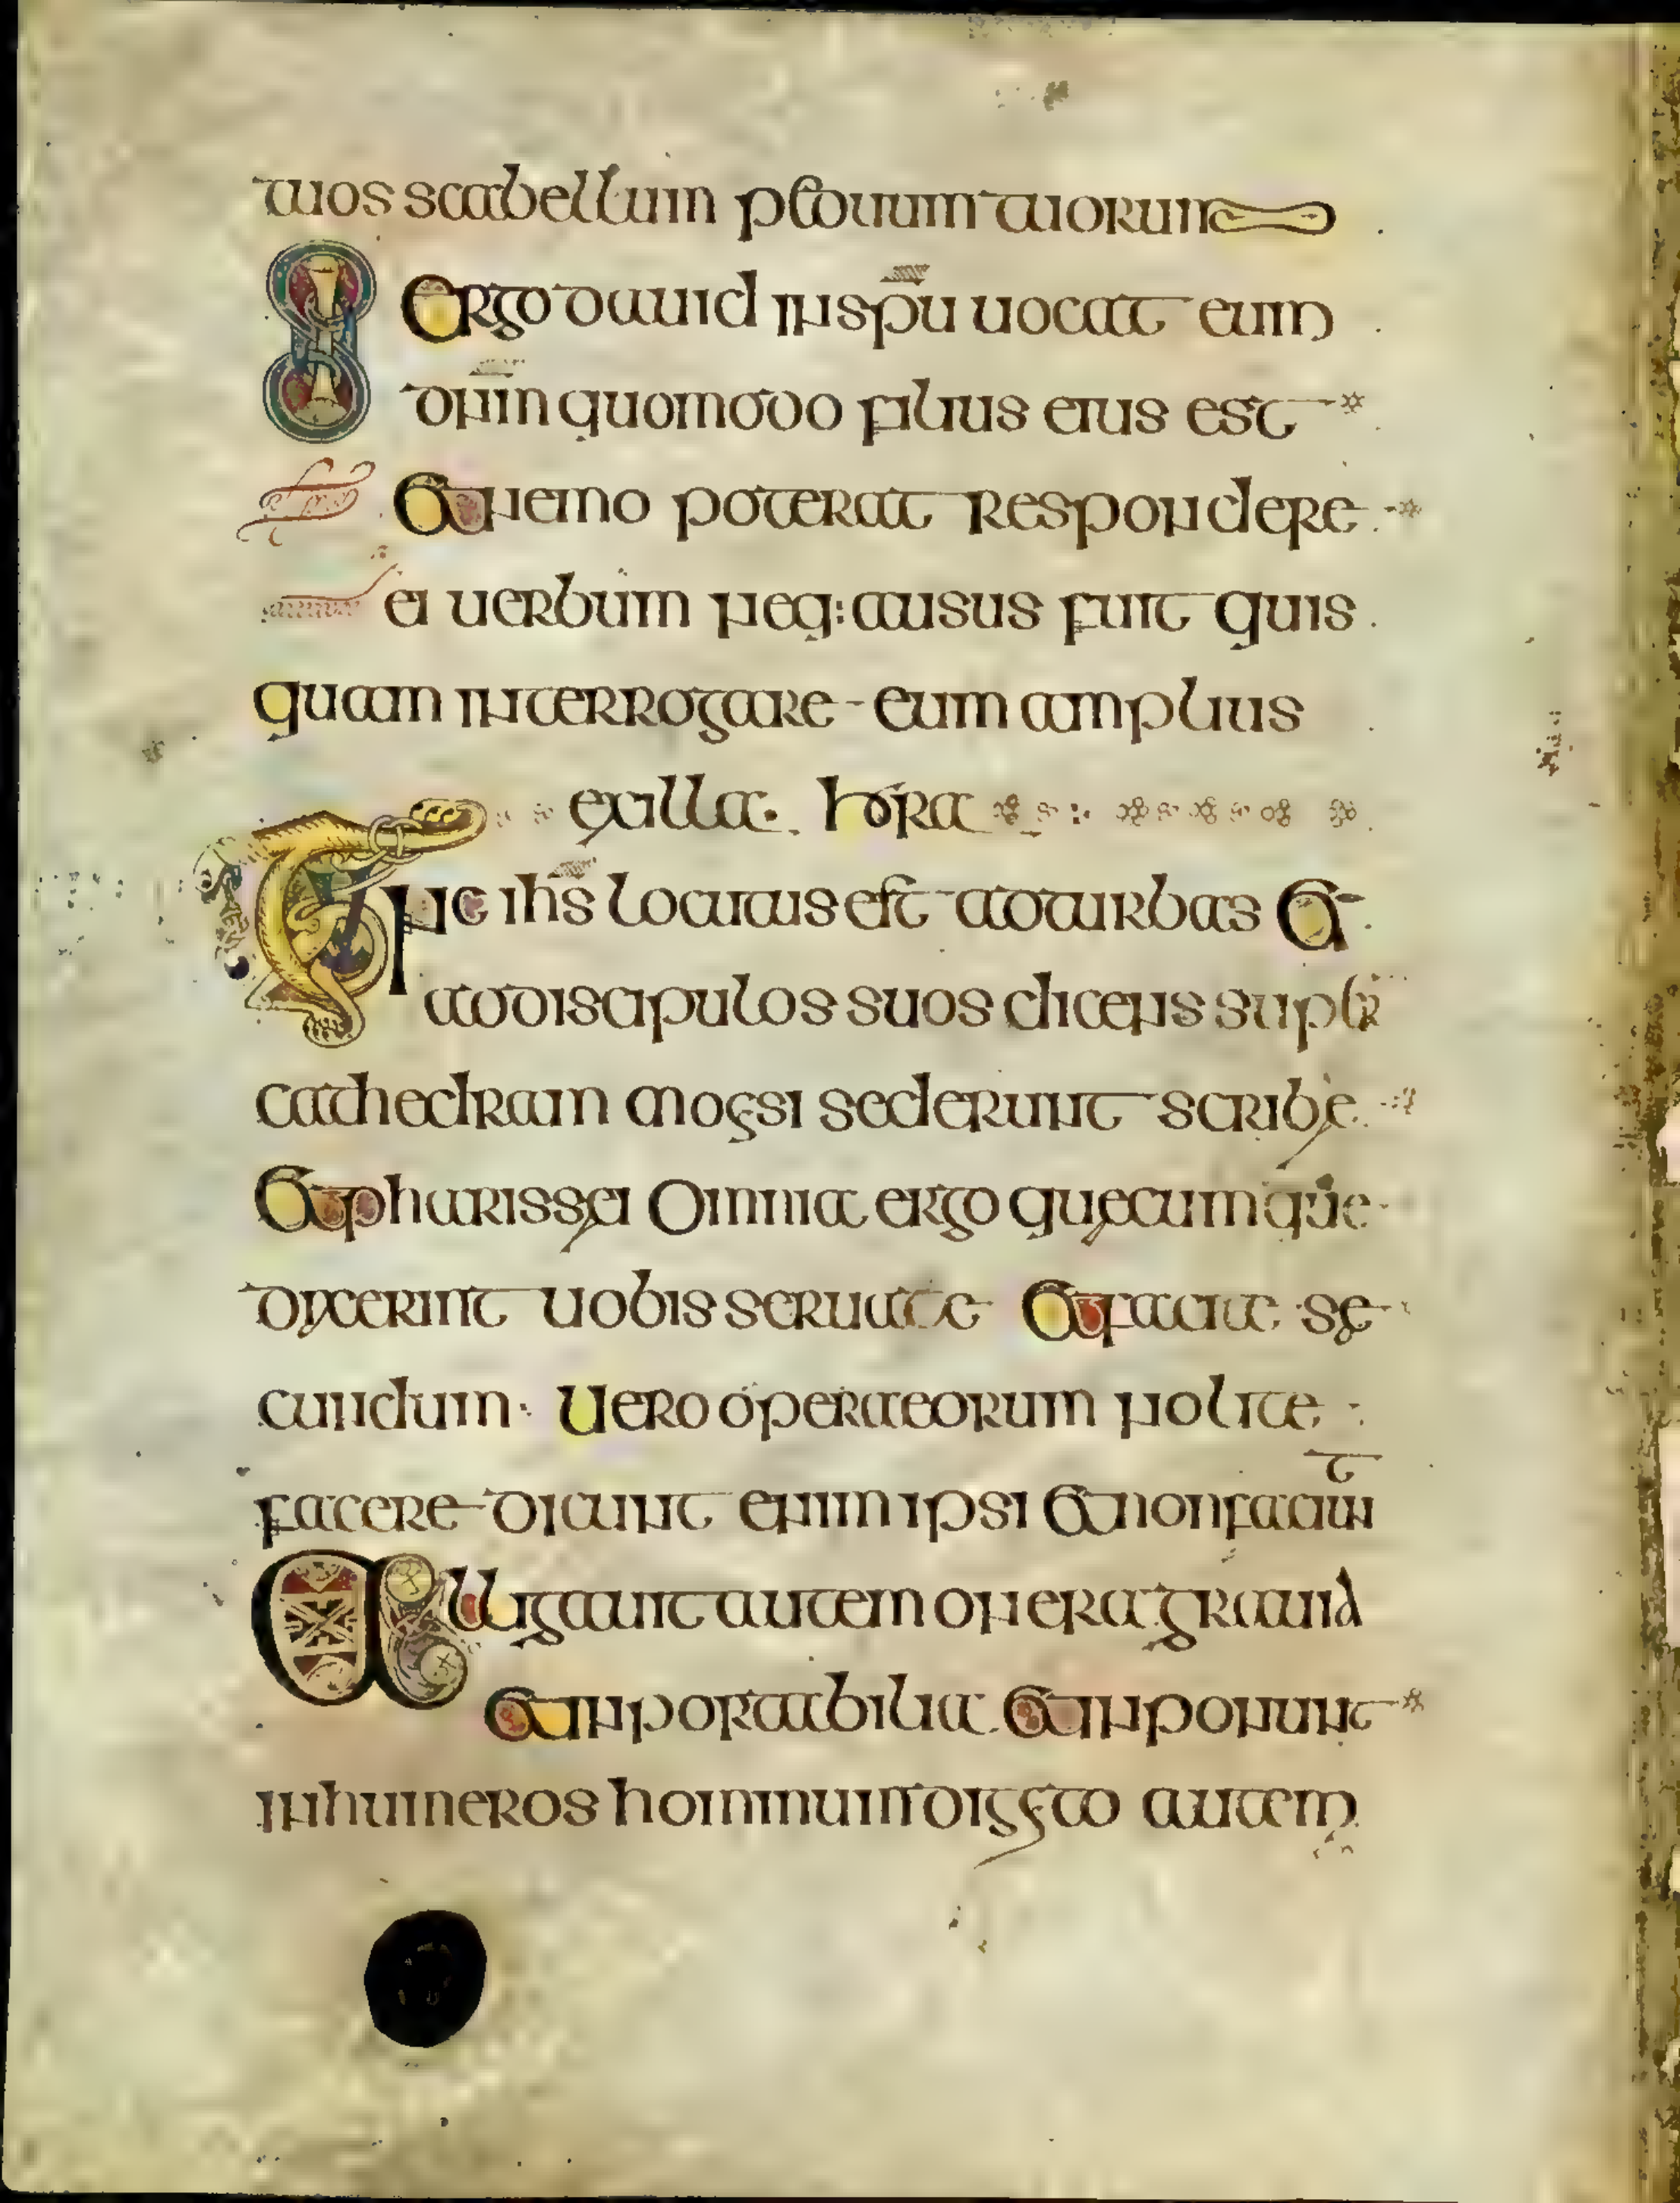 tuos scabellum pedum tuorum
SI ergo dauid in spu uocat eum
dnm quomodo filius eius est
Et nemo poterat respondere
ei uerbum neq: ausus fuit quis
quam interrogare eum amplius
ex illa hora
Tunc ihs locutus est ad turbas Et
ad discipulos suos dicens super
cathedram moysi sederunt scribę
Et pharissęi Omnia ergo quęcumque
dixerint uobis seruate Et facite sę
cundum Uero opera eorum nolite
facere dicunt enim ipsi Et non faciunt
Alligant autem onera grauia
Et inportabilia Et inponunt
in humeros hominum digyto autem